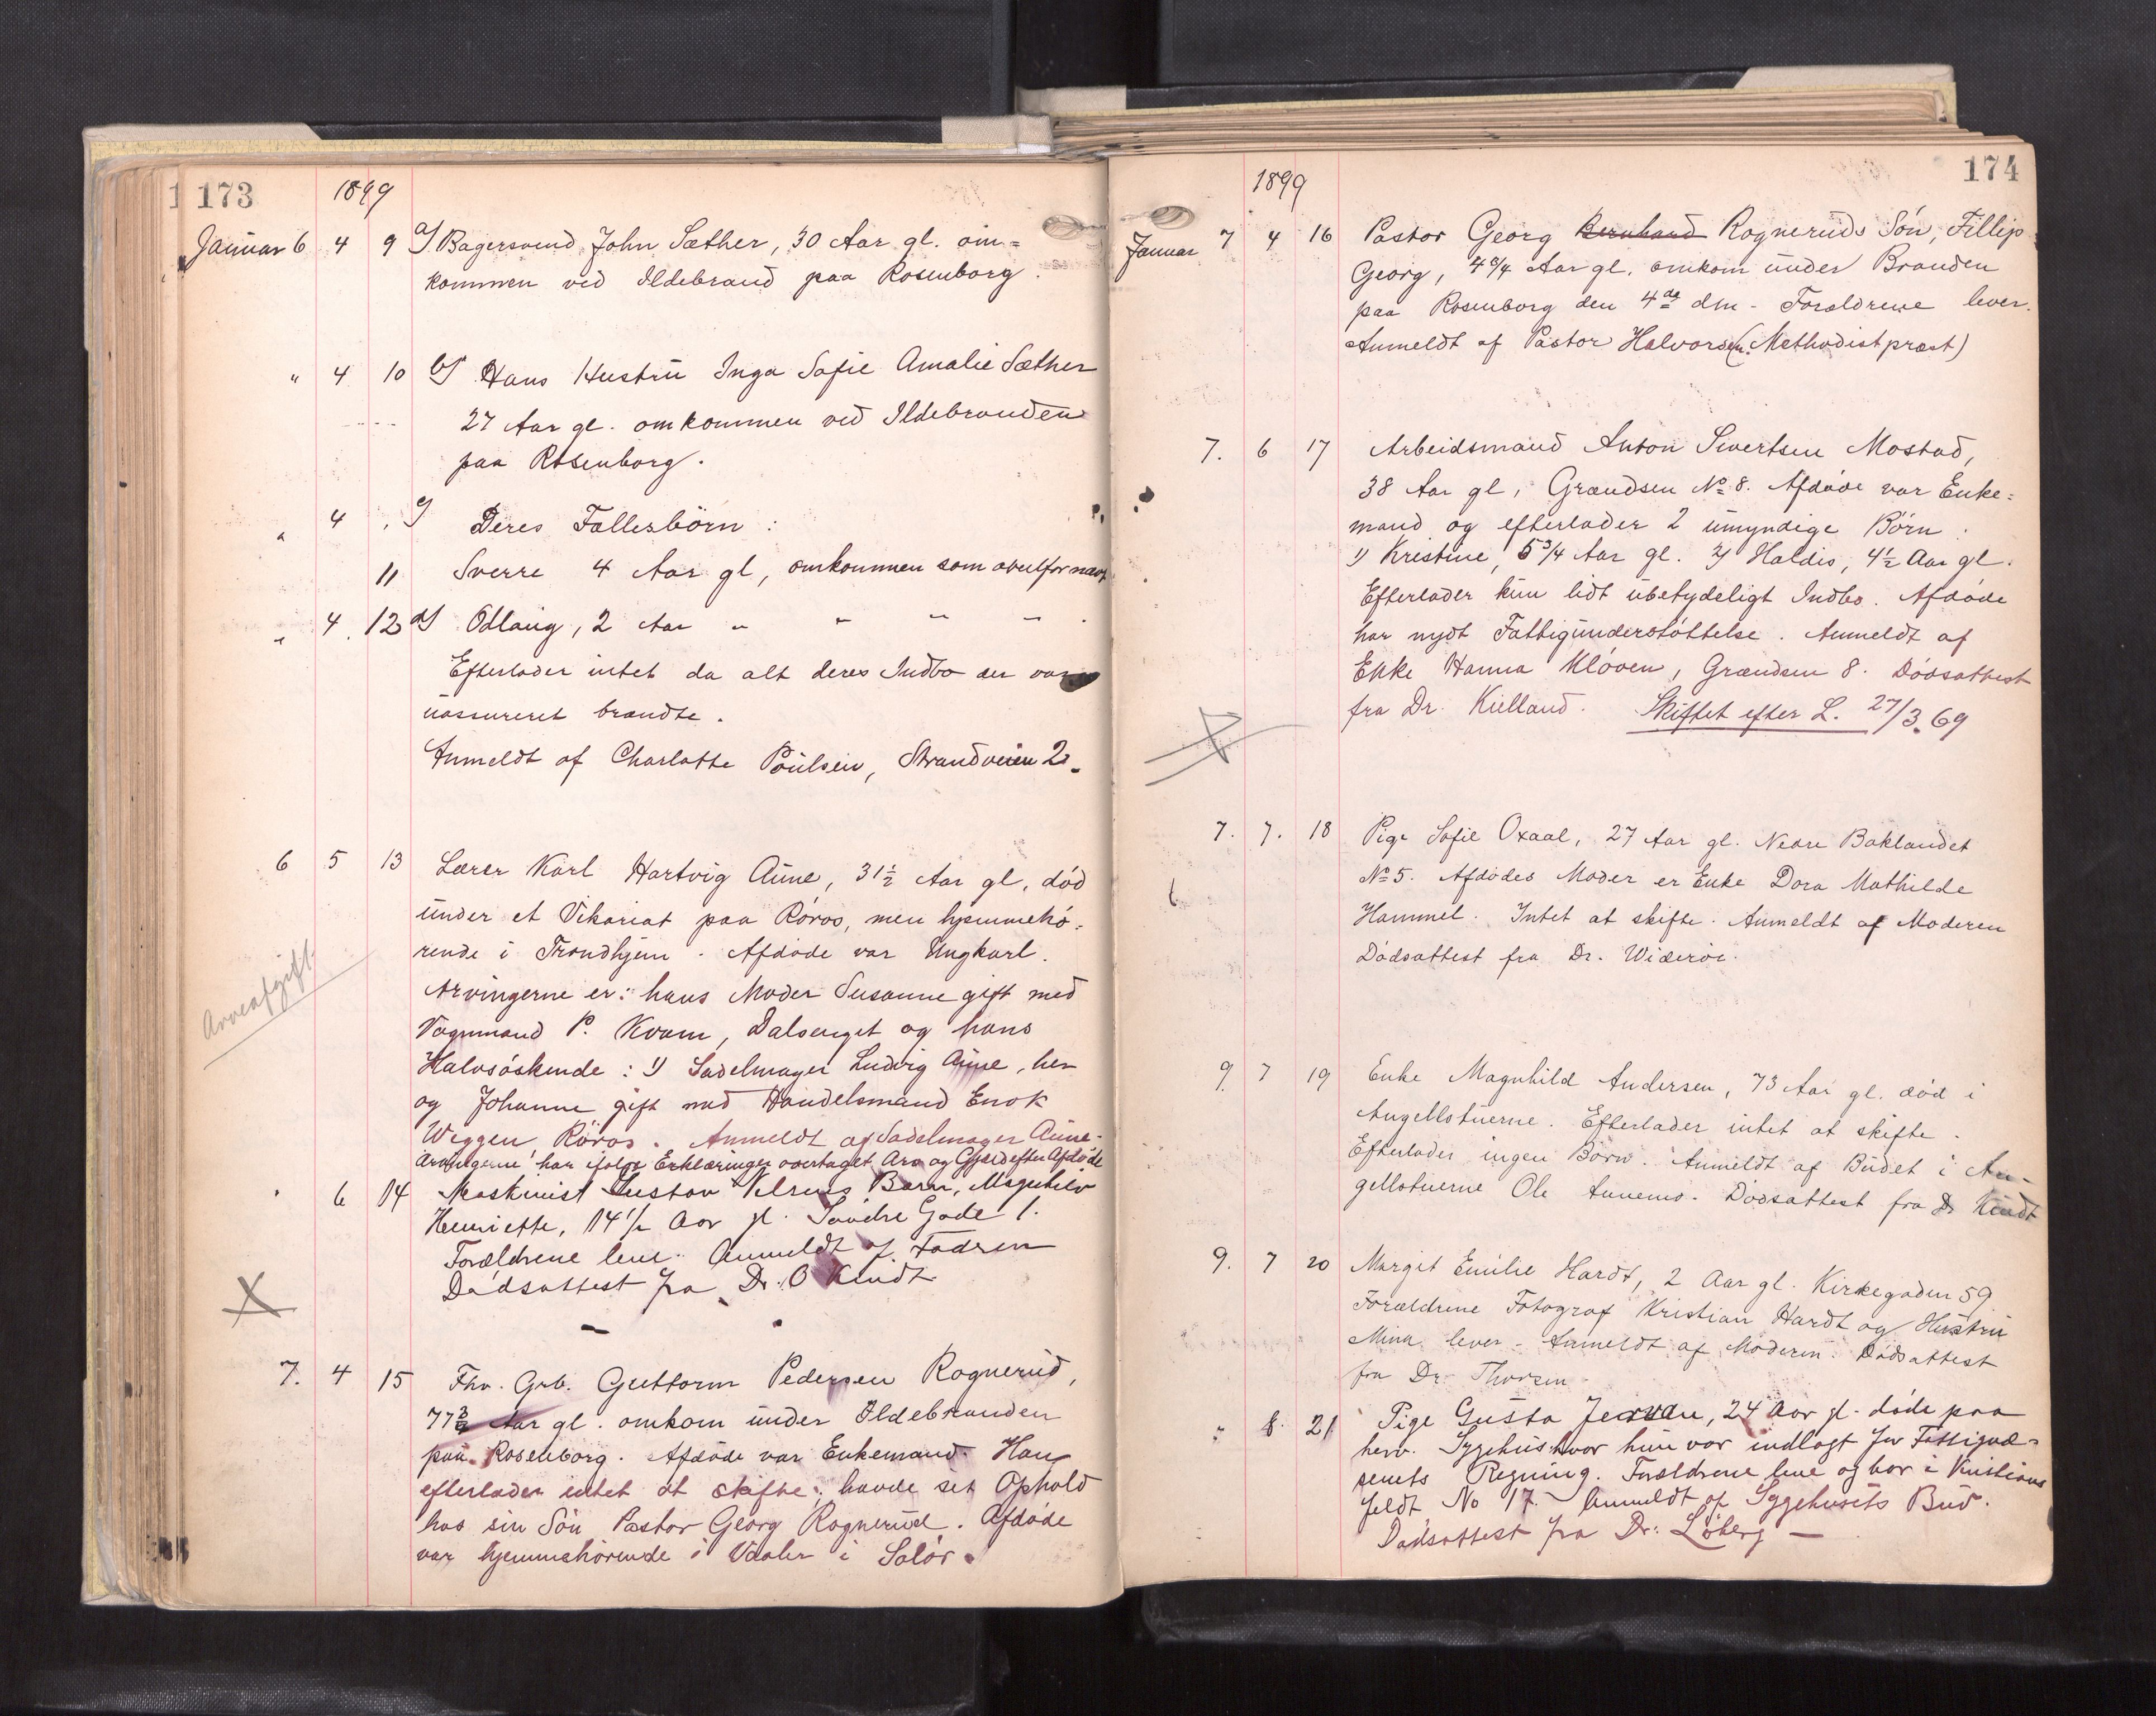 173
1899
Januar 6 4 9 a) Bagersvend John Sæther, 30 Aar gl. om=
kommen ved Ildebrand paa Rosenborg.
" 4 10 b) Hans Hustru Inga Sofie Amalie Sæther
27 Aar gl. omkommen ved Ildebranden
paa Rosenborg.
" 4 c) Deres Fællesbörn:
11 Sverre 4 Aar gl, omkommen som ovenfor nævt
" 4. 12 d) Odlaug, 2 Aar " " " "
Efterlader intet da alt deres Indbo der var
uassureret brændte.
Anmeldt af Charlotte Poulsen, Strandveien 2.
6 5 13 Lærer Karl Hartvig Aune, 31½ Aar gl, død
under et Vikariat paa Röros, men hjemmehö=
rende i Trondhjem. Afdöde var Ungkarl.
Arvingerne er: hans Moder Susanne gift med
Vognmand P. Kvam, Dalsenget og hans
Halvsöskende: 1) Sadelmager Ludvig Aune, her
og Johanne gift med Handelsmand Enok
Weggen Röros. Anmeldt af Sadelmager Aune.
Arvingerne har ifölge Erklæringer overtaget Arv og Gjæld efter Afdöde
Arveafgift
" 6 14 Maskinist Gustav Barn, Magnhild
Henriette, 14½ Aar gl. Søndre Gade 1.
Forældrene leve. Anmeldt af Faderen
Dødsattest fra Dr. O Kindt
7. 4 15 Fhv. Grb. Guttorm Pedersen Rognerud,
77 Aar gl. omkom under Ildebranden
paa Rosenborg. Afdöde var Enkemand. Han
efterlader intet at skifte; havde sit Ophold
hos sin Sön Pastor Georg Rognerud. Afdöde
var hjemmehörende i Vaaler i Solör.
174
1899
Januar 7 4 16 Pastor Georg Bernhard Rogneruds Sön, Fillip
Georg, Aar gl. omkom under Branden
paa Rosenborg den 4de dm - Forældrene lever.
Anmeldt af Pastor Halvorsen (Methodistpræst)
7. 6 17 Arbeidsmand Anton Sivertsen Mostad,
38 Aar gl, Grændsen No 8. Afdöde var Enke=
mand og efterlader 2 umyndige Börn.
1) Kristine, 5¾ Aar gl. 2) Haldis, 4½ Aar gl.
Efterlader kun lidt ubetydeligt Indbo. Afdöde
har nydt Fattigunderstöttelse. Anmeldt af
Enke Hanna Klöven, Grændsen 8. Dödsattest
fra Dr. Kielland. Skiftet efter L. 27/3.69
7. 7. 18 Pige Sofie Oxaal, 27 Aar gl. Nedre Baklandet
No 5. Afdödes Moder er Enke Dora Mathilde
Hammel. Intet at skifte. Anmeldt af Moderen
Dödsattest fra Dr. Wideröe.
9. 7 19 Enke Magnhild Andersen, 73 Aar gl. död i
Angellstuerne. Efterlader intet at skifte.
Efterlader ingen Börn. Anmeldt af Budet i An-
gellstuerne Ole Aunemo. Dödsattest fra Dr Kindt
9. 7 20 Margit Emilie Hardt, 2 Aar gl. Kirkegaden 59
Forældrene Fotograf Kristian Hardt og Hustru
Mina lever. Anmeldt af Moderen. Dødsattest
fra Dr. Thoresen
" 8. 21 Pige Gusta Jervan, 24 Aar gl. døde paa
herv. Sygehus hvor hun var indlagt for Fattigvæ=
senets Regning. Forældrene leve og bor i Kristians
feldt No 17. Anmeldt af Sygehusets Bud.
Dødsattest fra Dr. Løberg —